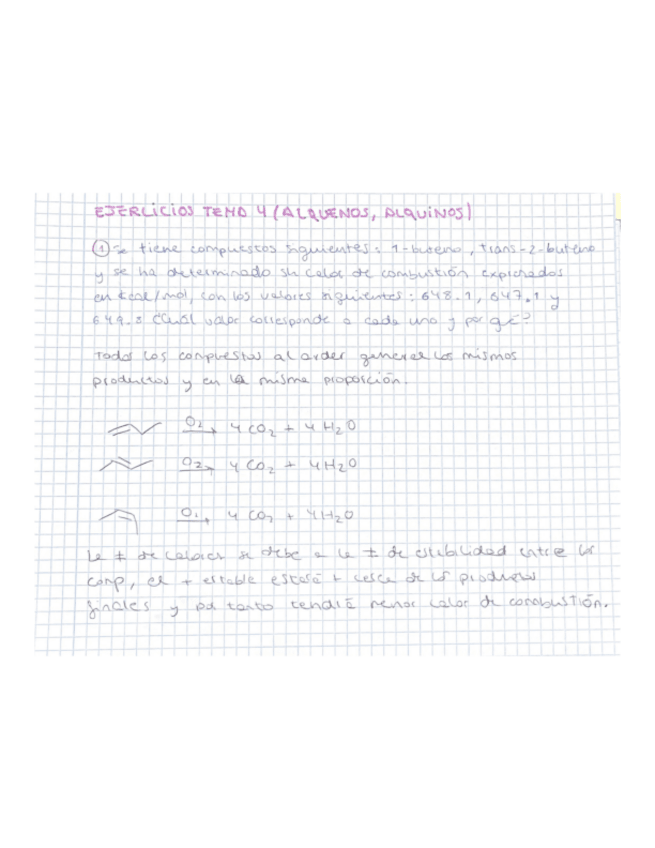 EJERCICIOS TEMA 4 (ALQUENOS, ALQUINOS)
① Se tiene compuestos siguientes: 1-buteno, trans-2-buteno
y se ha determinado su calor de combustión expresados
en kcal/mol, con los valores siguientes: 648.1, 647.1 y
649.8 ¿Cuál valor corresponde a cada uno y por qué?
Todos los compuestos al arder generan los mismos
productos y en la misma proporción.
O2 → 4 CO2 + 4 H2O
O2 → 4 CO2 + 4H2O
O2 → 4 CO2 + 4H2O
La ≠ de calores se debe a la ≠ de estabilidad entre los
comp, el + estable estará + cerca de los productos
finales y por tanto tendrá menor calor de combustión.